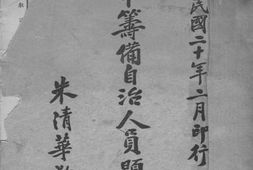 民國二十年二月印行
籌備自治人員
朱清華